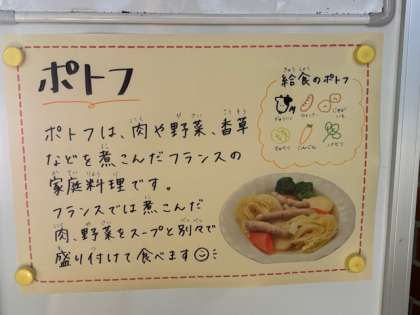 ポトフ
ポトフは、肉や野菜、香草
などを煮こんだフランスの
家庭料理です。
フランスでは煮こんだ
肉、野菜をスープと別々で
盛り付けて食べます
給食のポトフ